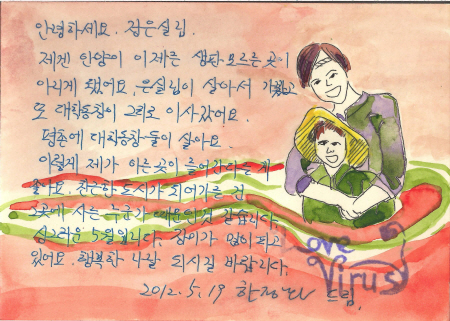 안녕하세요. 점은실님.
제겐 안양이 이제는 생판 모르는 곳이
아니게 됐어요. 은실님이 살아서 가봤고
또 대학동창이 그리로 이사갔어요.
평촌에 대학동창 둘이 살아요.
이렇게 제가 아는 곳이 늘어간다는 게
좋아요. 친근한 도시가 되어가는 건
그곳에 사는 누군가 때문인것 같습니다.
싱그러운 5월입니다. 장미가 많이 피고
있어요. 행복한 나날 되시길 바랍니다.
2012. 5. 19 드림.
Love
Virus